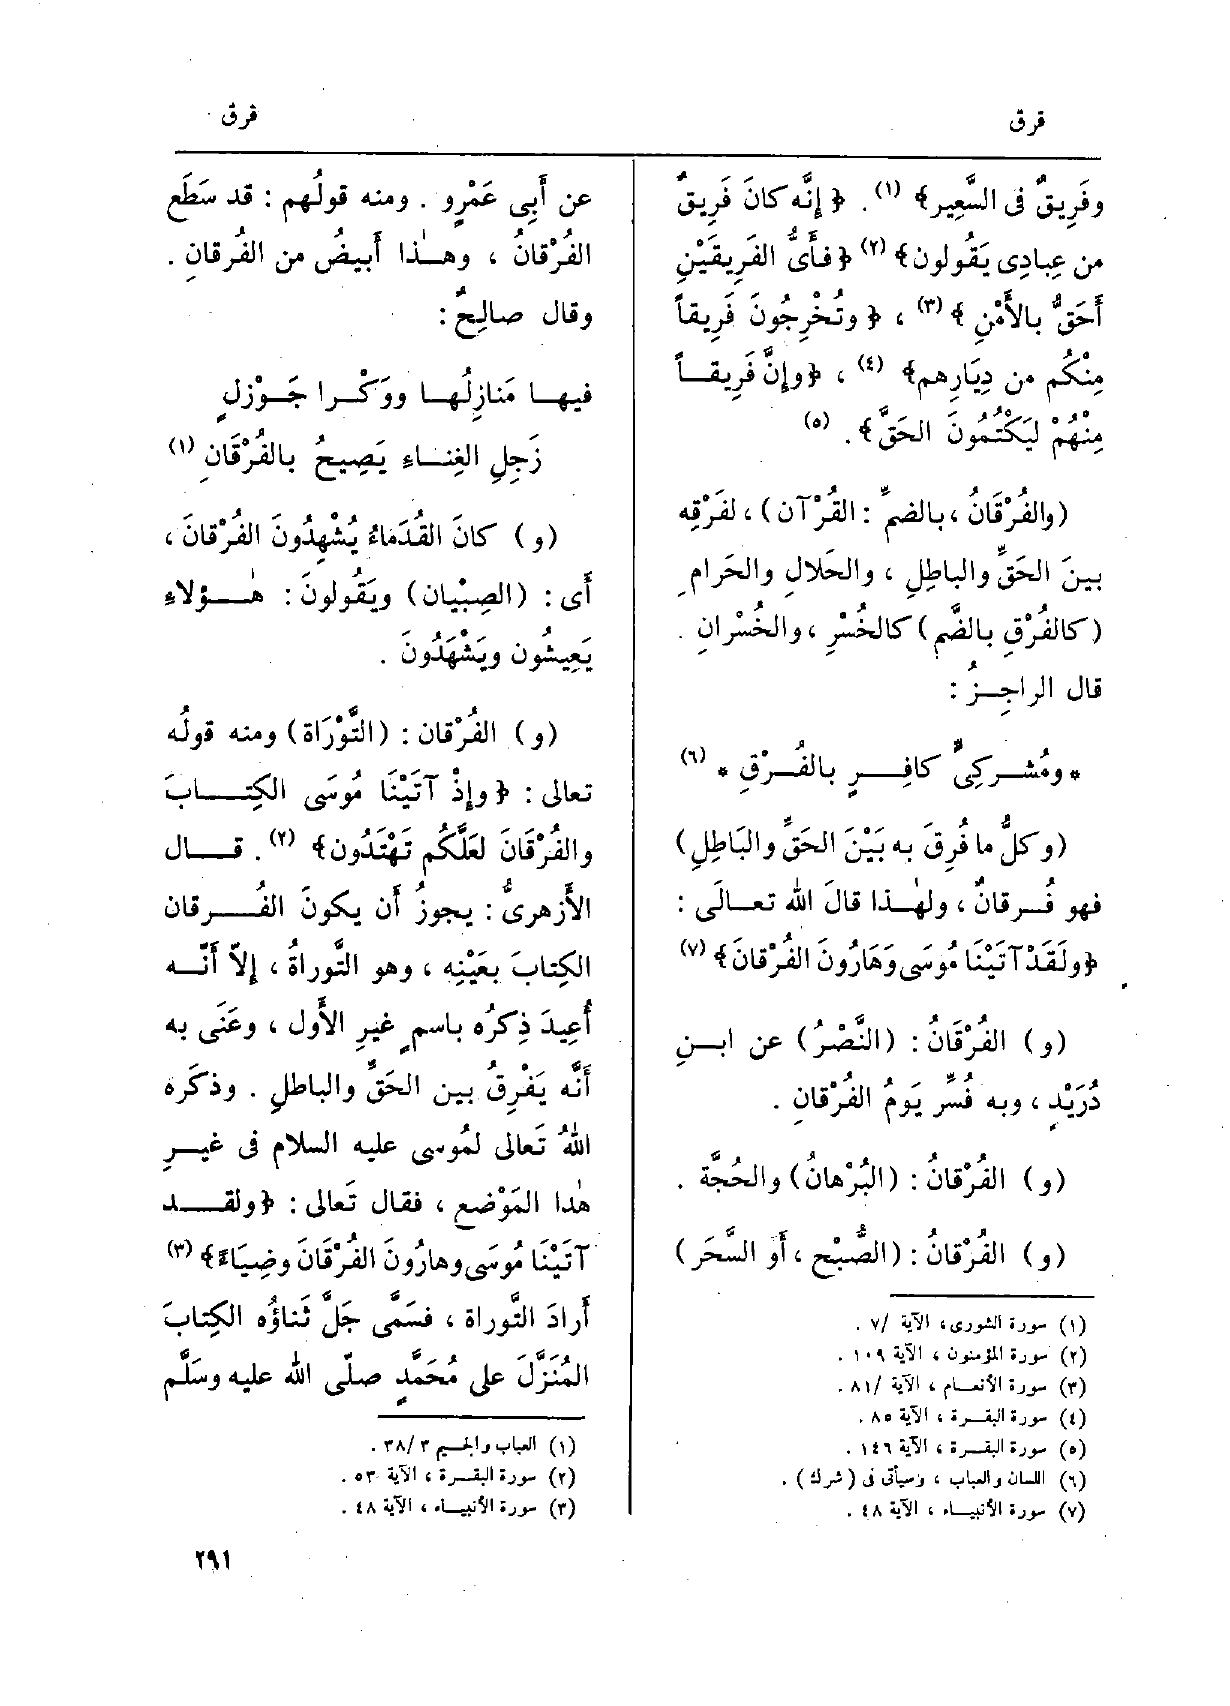 فرق
فرق
وفَرِيقٌ فى السَّعِير﴾ (١) . ﴿ إِنَّه كانَ فَرِيقٌ
من عِبادِى يَقُولون﴾ (٢) ﴿ فأَىُّ الفَرِيقَيْنِ
أَحَقُّ بالأَمْنِ ﴾ (٣) ، ﴿ وتُخْرِجُونَ فَرِيقاً
مِنْكُم من دِيَارِهم﴾ (٤) ، ﴿وإِنَّ فَرِيقــاً
مِنْهُمْ لَيَكْتُمُونَ الحَقَّ﴾ . (٥)
(والفُرْقَانُ ، بالضمِّ : القُرْآن) ، لفَرْقِه
بينَ الحَقِّ والباطِلِ ، والحَلالِ والحَرامِ
(كالفُرْقِ بالضَّم) كالخُسْرِ ، والخُسْرانِ .
قال الراجِــزُ :
* ومُشـركِىٍّ كافِــرٍ بالفُــرْقِ * (٦)
(وكلُّ ما فُرِقَ به بَيْنَ الحَقِّ والبَاطِلِ)
فهو فُـرقانٌ ، ولهـٰذا قالَ الله تعــالَى :
﴿ولَقَدْ آتَيْنَا مُوسَى وَهَارُونَ الفُرْقانَ﴾ (٧)
(و) الفُرْقَانُ : (النَّصْرُ) عن ابــنِ
دُرَيْدٍ ، وبه فُسِّر يَومُ الفُرْقانِ .
(و) الفُرْقانُ : (البُرْهانُ) والحُجَّة .
(و) الفُرْقانُ : (الصُّبْح ، أَو السَّحَر)
(١) سورة الشورى، الآية /٧ .
(٢) سورة المؤمنون ، الآية ١٠٩ .
(٣) سورة الأنعـام ، الآية /٨١ .
(٤) سورة البقـرة ، الآية ٨٥ .
(٥) سورة البقـرة ، الآية ١٤٦ .
(٦) اللسان والعباب ، وسيأتى فى (شرك) .
(٧) سورة الأنبيـاء ، الآية ٤٨ .
عن أَبِى عَمْرٍو . ومنه قولُهم : قد سَطَع
الفُرْقانُ ، وهـٰـذا أَبيضُ من الفُرقانِ .
وقال صالِحٌ :
فيهـا مَنازِلُهـا ووَكْـرا جَـوْزلٍ
زَجِلِ الغِنـاءِ يَصِيحُ بالفُرْقَانِ (١)
(و) كانَ القُدَماءُ يُشْهِدُونَ الفُرْقانَ ،
أَى : (الصِبْيان) ويَقُولونَ : هـٰــؤلاءِ
يَعِيشُون ويَشْهَدُونَ .
(و) الفُرْقان : (التَّوْرَاة) ومنه قولُه
تعالى : ﴿ وإِذْ آتَيْنَا مُوسَى الكِتــابَ
والفُرْقَانَ لعَلَّكُم تَهْتَدُون﴾ (٢) . قــال
الأَزهرىُّ : يجوزُ أَن يكونَ الفُــرقان
الكِتابَ بعَيْنِه ، وهو التَّوراةُ ، إِلاّ أَنّــه
أُعِيدَ ذِكرُه باسمٍ غيرِ الأَول ، وعَنَى به
أَنَّه يَفْرِقُ بين الحَقِّ والباطلِ . وذكَره
اللهُ تَعالى لمُوسى عليه السلام فى غيــرِ
هٰذا المَوْضعِ ، فقال تَعالى : ﴿ولقــد
آتَيْنَا مُوسَى وهارُونَ الفُرْقَانَ وضِيَاءً﴾ (٣)
أَرادَ التَّوراة ، فسَمَّى جَلَّ ثَناؤُه الكِتابَ
المُنَزَّلَ على مُحَمَّدٍ صلّى الله عليه وسَلَّم
(١) العباب والجيـم ٣ /٣٨ .
(٢) سورة البقـرة ، الآية ٥٣ .
(٣) سورة الأنبيـاء ، الآية ٤٨ .
٢٩١